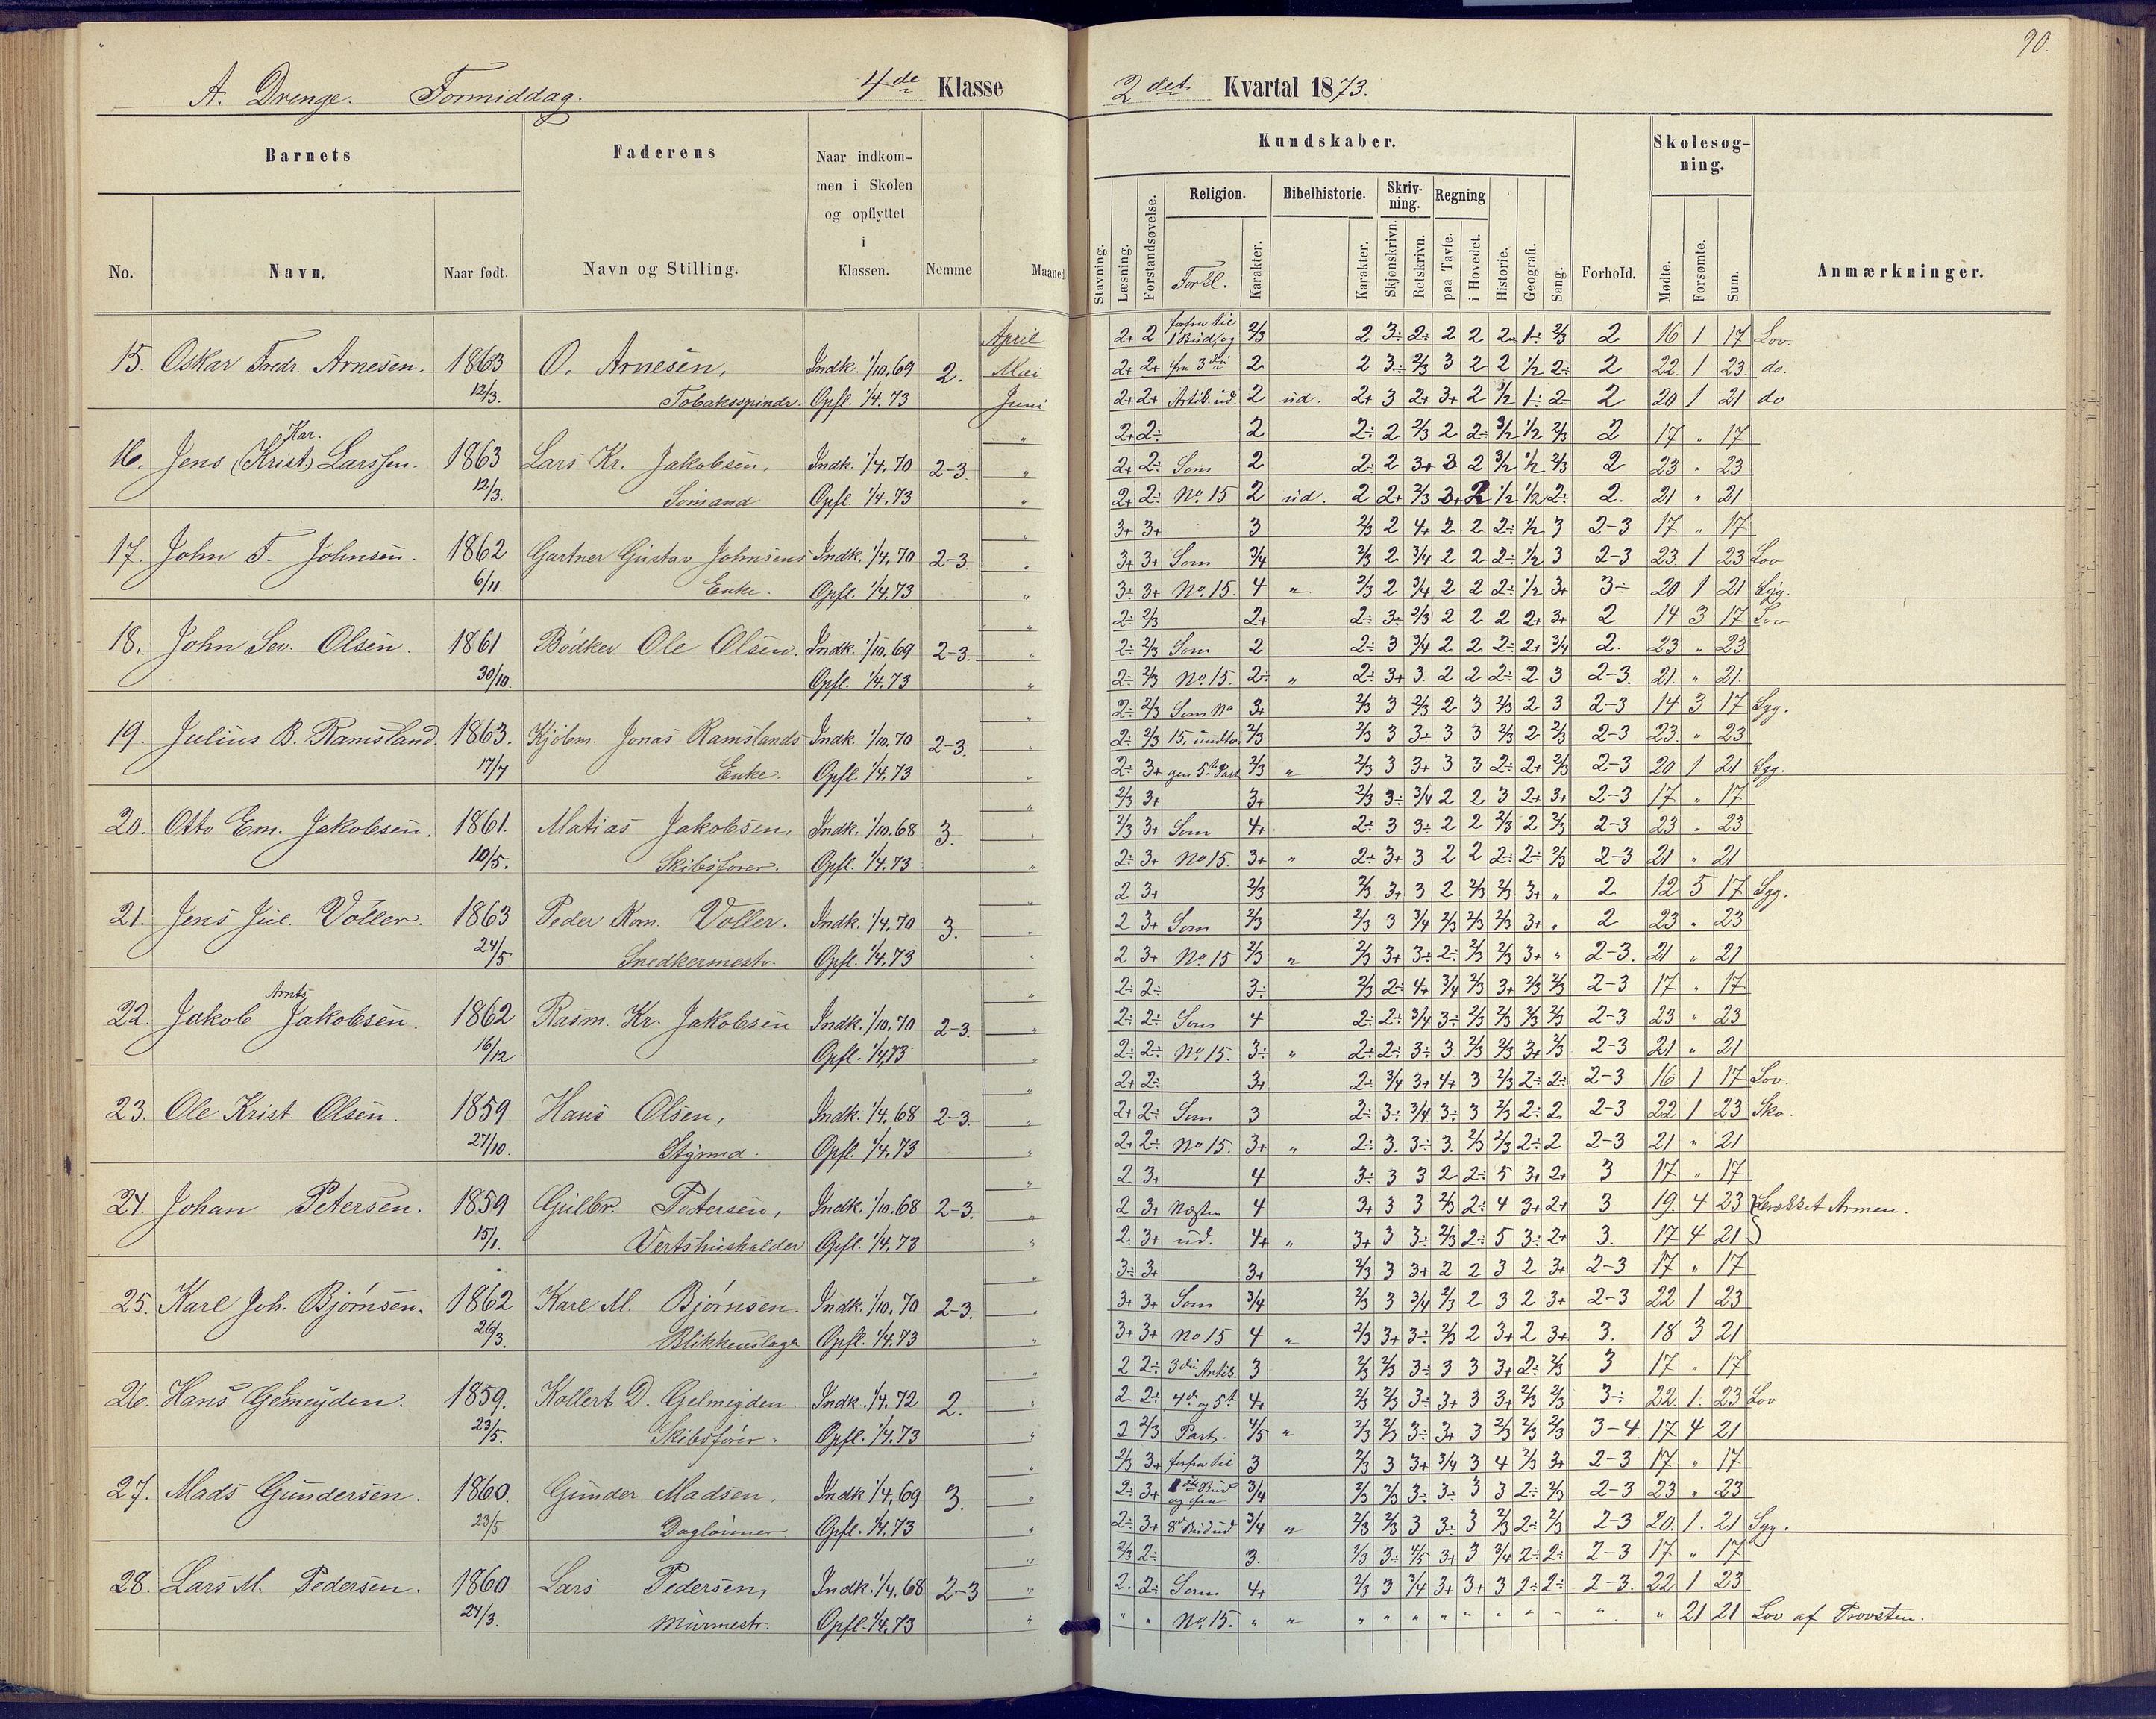 90.
A. Drenge. Formiddag. 4de Klasse
2det Kvartal 1873.
Barnets
Faderens
Naar indkommen i Skolen og opflyttet i Klassen.
Nemme
Maaned
Kundskaber.
Forhold.
Skolesøgning.
Anmærkninger.
No.
Navn.
Naar født.
Navn og Stilling.
Stavning.
Læsning.
Forstandsøvelse.
Religion.
Forkl.
Karakter.
Bibelhistorie.
Karakter.
Skrivning.
Skjønskrivn.
Retskrivn.
Regning
paa Tavle.
i Hovedet.
Historie.
Geografi.
Sang.
Mødte.
Forsømte.
Sum.
April 2+ 2 forfra til 1 Bud, og 2/3 2 3÷ 2÷ 2 2 2÷ 1÷ 2/3 2 16 1 17 Lov.
15. Oskar Fredr. Arnesen. 1863 O. Arnesen, Indk. 1/10.69 2. Mai 2+ 2+ fra 3die 2 2 3÷ 2/3 3 2 2 1/2 2÷ 2 22 1 23 do.
12/3. Tobaksspinder. Opfl. 1/4.73 Juni 2+ 2+ Artik. ud. 2 ud. 2+ 3 2+ 3+ 2 1/2 1÷ 2÷ 2 20 1 21 do
Kar. " 2+ 2÷ 2 2÷ 2 2/3 2 2÷ 3/2 1/2 2/3 2 17 " 17
16. Jens (Krist.) Larssen. 1863 Lars Kr. Jakobsen, Indk. 1/4.70 2-3. " 2+ 2÷ Som 2 2÷ 2 3+ 3 2 3/2 1/2 2/3 2 23 " 23
12/3. Sømand Opfl. 1/4.73 " 2+ 2÷ No. 15 2 ud. 2 2+ 2/3 3+ 2 1/2 1/2 2÷ 2. 21 " 21
" 3+ 3+ 3 2/3 2 4+ 2 2 2÷ 1/2 3 2-3 17 " 17
17. John F. Johnsen. 1862 Gartner Gustav Johnsens Indk. 1/4.70 2-3. " 3+ 3+ Som 3/4 2/3 2 3/4 2 2 2÷ 1/2 3 2-3 23 1 23 Lov
6/11. Enke. Opfl. 1/4.73 " 3÷ 3+ No. 15. 4 " 2/3 2 3/4 2 2 2÷ 1/2 3+ 3÷ 20 1 21 Syg.
" 2÷ 2/3 2+ 2÷ 3÷ 2/3 2 2 2 2+ 3+ 2 14 3 17 Lov
18. John Sev. Olsen. 1861 Bødker Ole Olsen. Indk. 1/10.69 2-3. " 2÷ 2/3 Som 2 2÷ 3 3/4 2 2 2÷ 2+ 3/4 2. 23 " 23
30/10. Opfl. 1/4.73 " 2÷ 2/3 No. 15. 2÷ " 2÷ 3+ 3. 2 2 2÷ 2 3 2-3. 21. " 21.
" 2÷ 2/3 Som No 3+ 2/3 3 2/3 2 3 2/3 2 3 2-3 14 3 17 Syg.
19. Julius B. Ramsland. 1863. Kjøbm. Jonas Ramslands Indk. 1/10.70 2-3. " 2÷ 2/3 15, undta- 2/3 2/3 3 3+ 3 3 2/3 2 2/3 2-3 23. " 23
17/7 Enke. Opfl. 1/4.73 " 2÷ 3+ gen 5te Part 2/3 " 2/3 3 3+ 3 3 2÷ 2+ 2/3 2-3 20 1 21 Syg.
" 2/3 3+ 3+ 2/3 3÷ 3/4 2 2 3 2+ 3+ 2-3 17 " 17
20. Otto Em. Jakobsen. 1861. Matias Jakobsen, Indk. 1/10.68 3. " 2/3 3+ Som 4+ 2÷ 3 3÷ 2 2 2/3 2 2/3 2-3 23 " 23
10/5. Skibsfører. Opfl. 1/4.73 " 2÷ 3+ No 15. 3+ " 2÷ 3+ 3 2 2 2÷ 2÷ 2/3 2-3 21 " 21
" 2 3+ 2/3 2/3 3+ 3 2 2/3 2/3 3+ " 2 12 5 17 Syg.
21. Jens Jul. Voller. 1863 Peder Rom. Voller. Indk. 1/4.70 3. " 2 3+ Som 2/3 2/3 3 3/4 2/3 2/3 2/3 3+ " 2 23 " 23
24/5 Snedkermestr. Opfl. 1/4.73 " 2 3+ No 15 2/3 " 2/3 3+ 3÷ 2÷ 2/3 2/3 3+ " 2-3. 21 " 21
Arnts " 2÷ 2÷ 3÷ 2/3 2÷ 4+ 3/4 2/3 3+ 2/3 2/3 2-3 17 " 17
22. Jakob Jakobsen. 1862 Rasm. Kr. Jakobsen Indk. 1/10.70 2-3. " 2÷ 2÷ Som 4 2÷ 2÷ 3/4 3÷ 2/3 2/3 2/3 2/3 2-3 23 " 23
16/12 Opfl. 1/4.73 " 2÷ 2÷ No. 15. 3÷ " 2÷ 2÷ 3÷ 3. 2/3 2/3 3+ 2/3 2-3 21 " 21
" 2+ 2÷ 3+ 2÷ 3/4 3+ 4+ 3 2/3 2÷ 2÷ 2-3 16 1 17 Lov.
23. Ole Krist. Olsen. 1859 Hans Olsen, Indk. 1/4.68 2-3. " 2+ 2÷ Som 3 2÷ 3÷ 3/4 3÷ 3 2/3 2÷ 2 2-3 22 1 23 Sko.
27/10. Styrmd. Opfl. 1/4.73 " 2+ 2÷ No 15. 3+ " 2÷ 3. 3÷ 3. 2/3 2/3 2÷ 2 2-3 21 " 21
" 2 3+ 4 3÷ 3 3 2 2÷ 5 3+ 2+ 3 17 " 17
24. Johan Petersen. 1859 Gulbr. Petersen, Indk. 1/10.68 2-3. " 2 3+ Næsten 4 3+ 3 3 2/3 2÷ 4 3+ 2+ 3 19. 4 23 Armen.
15/1. Vertshusholder Opfl. 1/4.73 " 2. 3+ ud. 4+ " 3+ 3 3÷ 2/3 2÷ 5 3÷ 2+ 3. 17 4 21
" 3÷ 3+ 3+ 2/3 3 3+ 2 2 3 2 3+ 2-3 17 " 17
25. Karl Joh. Bjørnsen. 1862 Karl M. Bjørnsen. Indk. 1/10.70 2-3. " 3+ 3+ Som 3/4 2/3 3 3/4 2/3 2 3 2 3+ 2-3 22 1 23
26/3. Blikkenslager Opfl. 1/4.73 " 3+ 3+ No 15 4 " 2/3 3+ 3÷ 2/3 2 3+ 2 3+ 3. 18 3 21
" 2 2÷ 3die Artik. 3 2/3 2/3 3÷ 3 3 3+ 2÷ 2/3 3 17 " 17
26. Hans Gelmeyden. 1859. Kollert D. Gelmeyden. Indk. 1/4.72 2. " 2 2÷ 4de og 5te 4+ 2/3 2/3 3÷ 3+ 3 3+ 2/3 2/3 3÷ 22. 1. 23 Lov
23/5. Skibsfører. Opfl. 1/4.73 " 2 2/3 Part. 4/5 " 2/3 2/3 3÷ 3+ 3 2/3 2/3 2/3 3-4. 17 4 21
" 2/3 3+ forfra til 3 2/3 3 3+ 3/4 3 4 2/3 3+ 2-3 17 " 17
27. Mads Gundersen. 1860. Gunder Madsen, Indk 1/4.69 3. " 2÷ 3+ Bud og fra 3/4 2/3 2/3 3÷ 3÷ 3 3 2÷ 2/3 2-3 23 " 23
23/5. Dagløнner. Opfl. 1/4.73 " 2÷ 3+ 8de Bud ud 3/4 " 2/3 2/3 3 3÷ 3 2/3 2÷ 2/3 2-3 20. 1. 21 Syg.
" 2/3 2÷ 3. 2/3 3÷ 4/5 3+ 3 3/4 2÷ 2÷ 2-3 17 " 17
28. Lars M. Pedersen. 1860 Lars Pedersen, Indk. 1/4.68 2-3 " 2. 2÷ Som 4+ 2/3 3 3/4 3+ 3+ 3 2÷ 2÷ 2-3. 22 1 23
24/3. Murmestr. Opfl. 1/4.73 " " " No. 15. " " " " " " " " " " " " 21 21 Lov af Provsten.